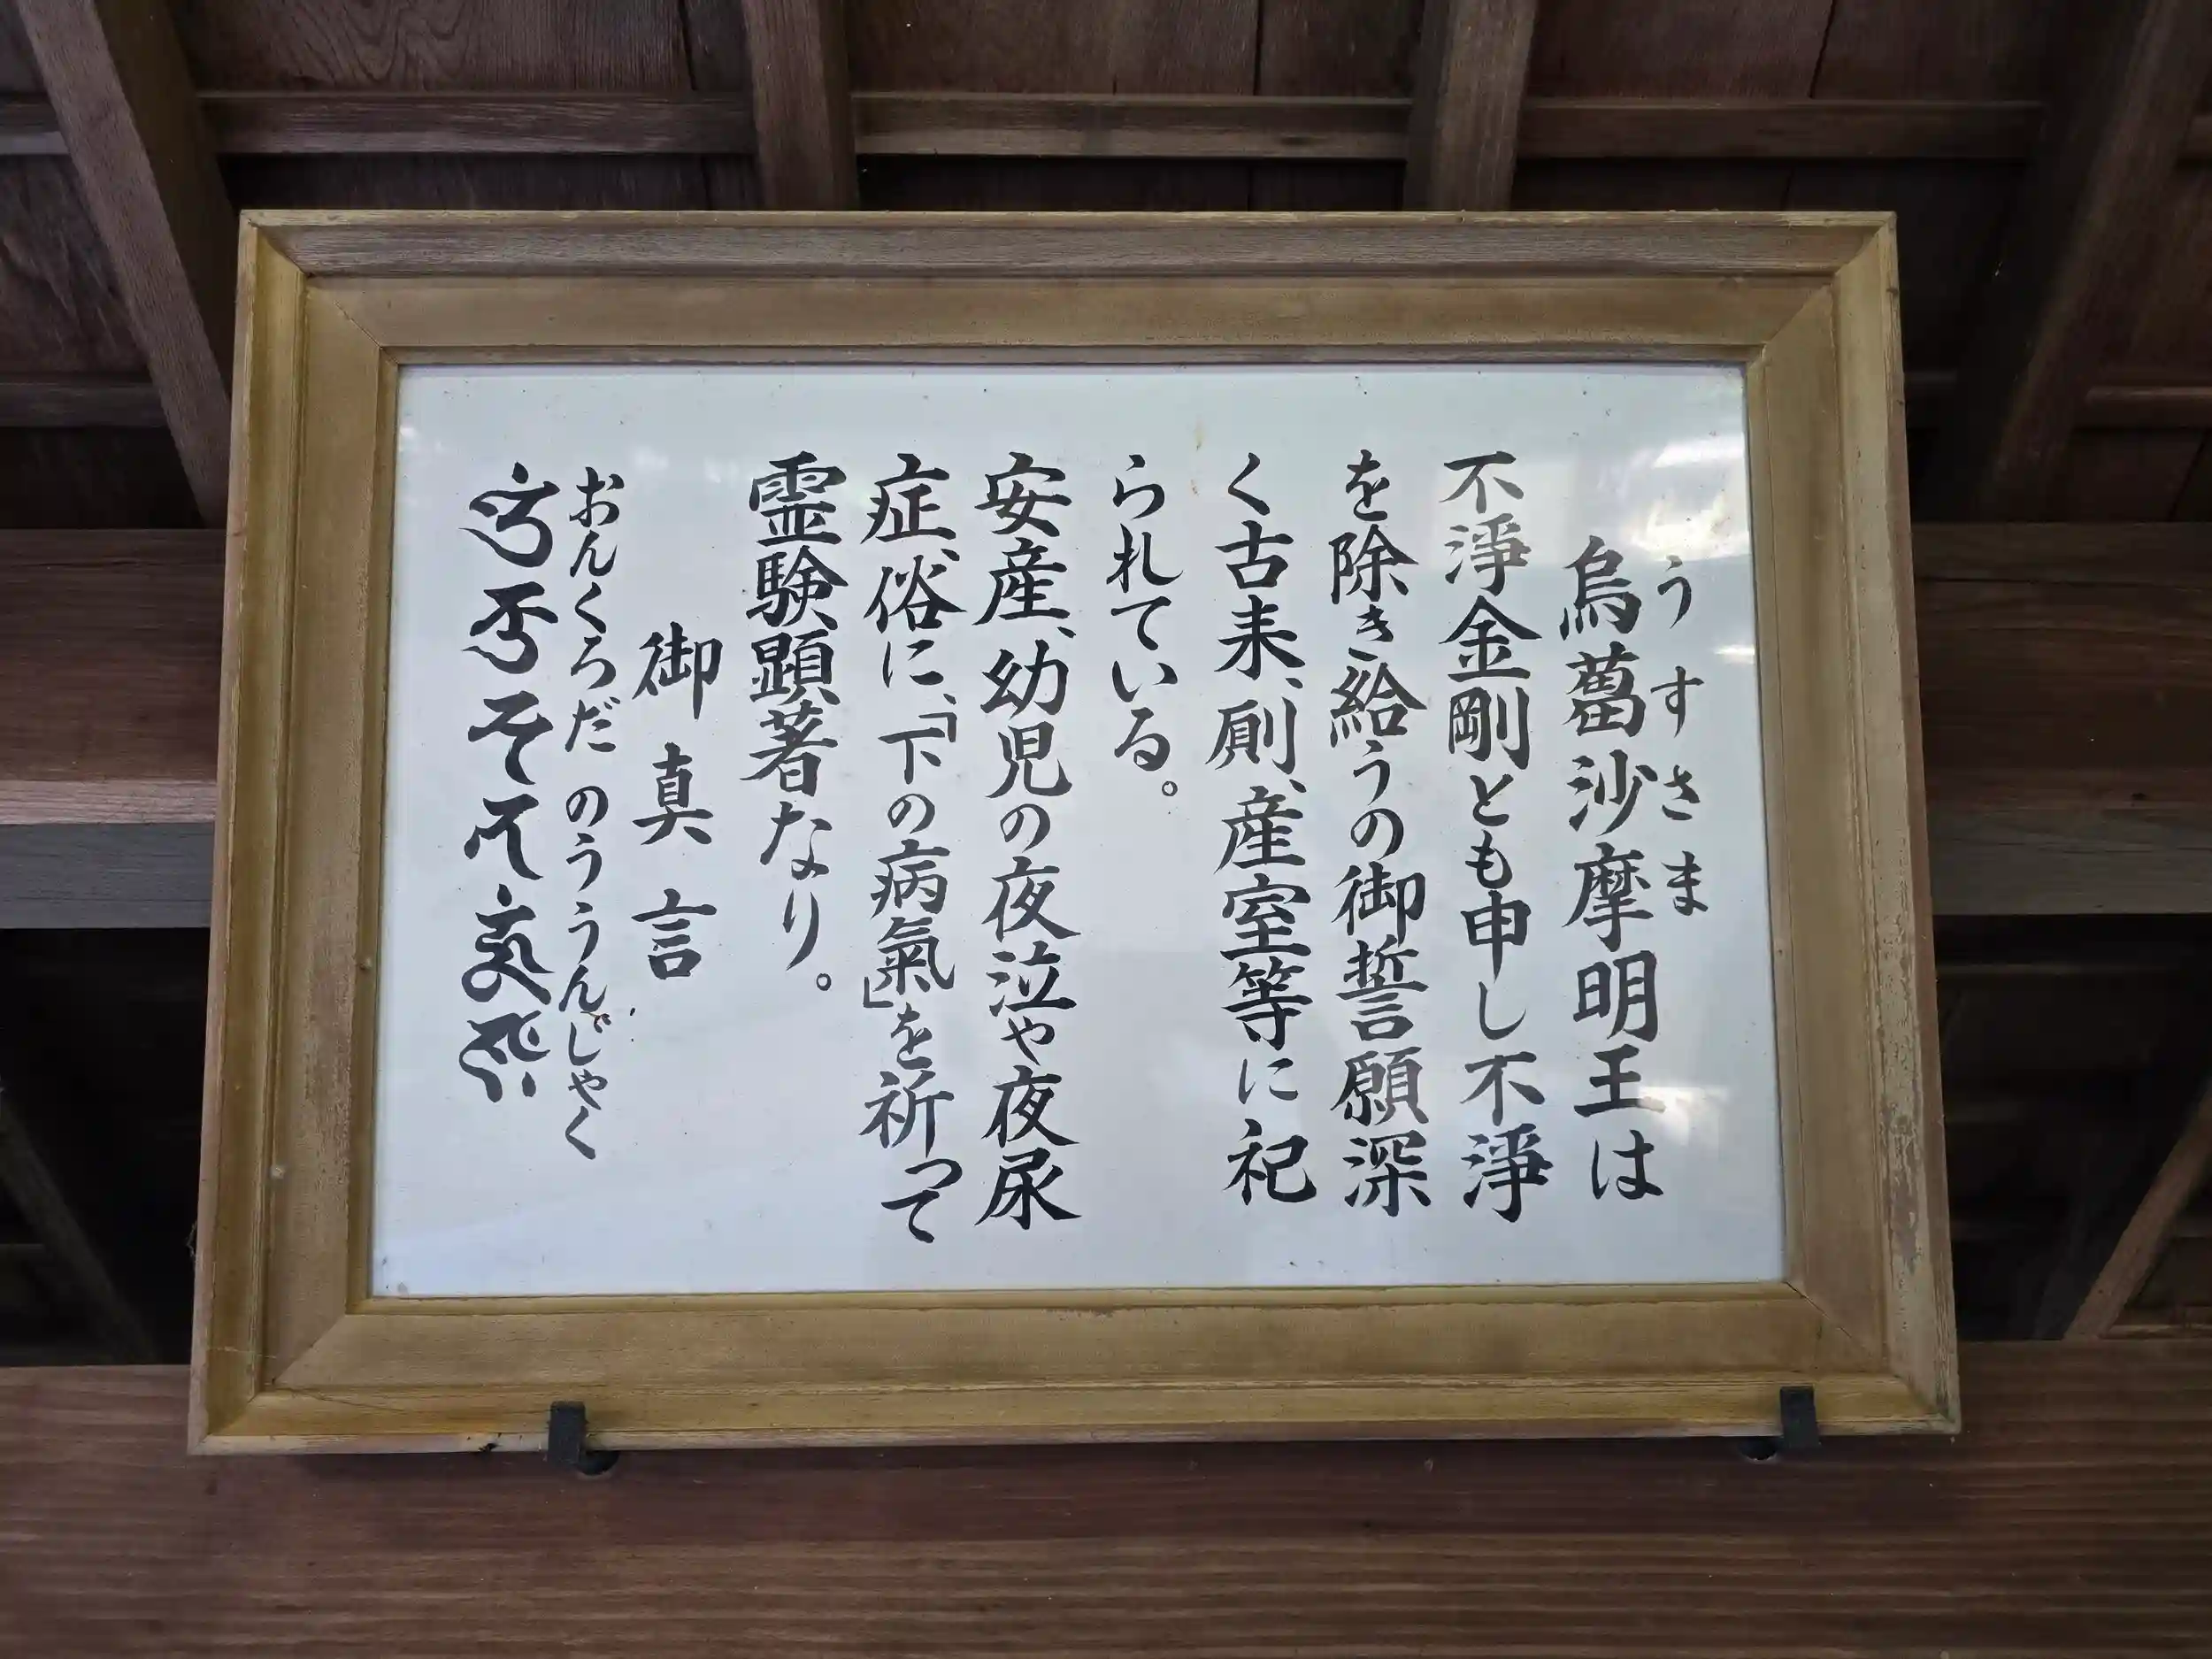 うすさま
烏蒭沙摩明王は
不淨金剛とも申し不淨
を除き給うの御誓願深
く古来、厠、産室等に祀
られている。
安産、幼児の夜泣や夜尿
症、俗に、「下の病氣」を祈って
霊験顕著なり。
御真言
おんくろだのううんじゃく